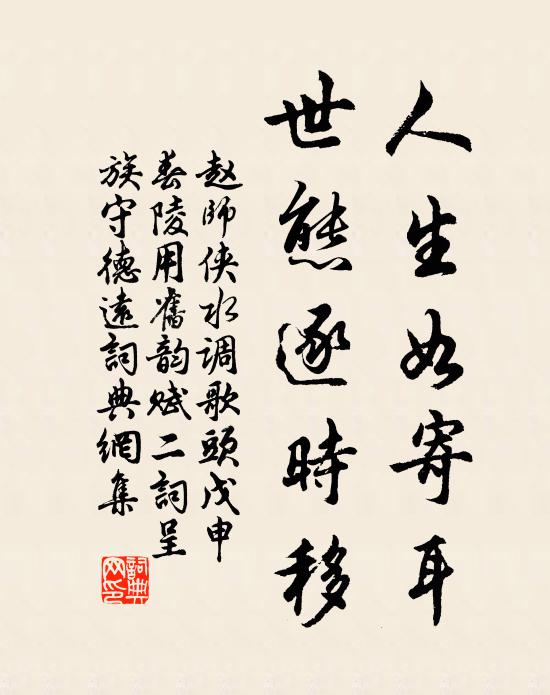 人生如寄耳
世態逐時移
赵師侠水调歌頭戊申
春陵用舊韵赋二詞呈
族守德遠詞典網集
詞典网印